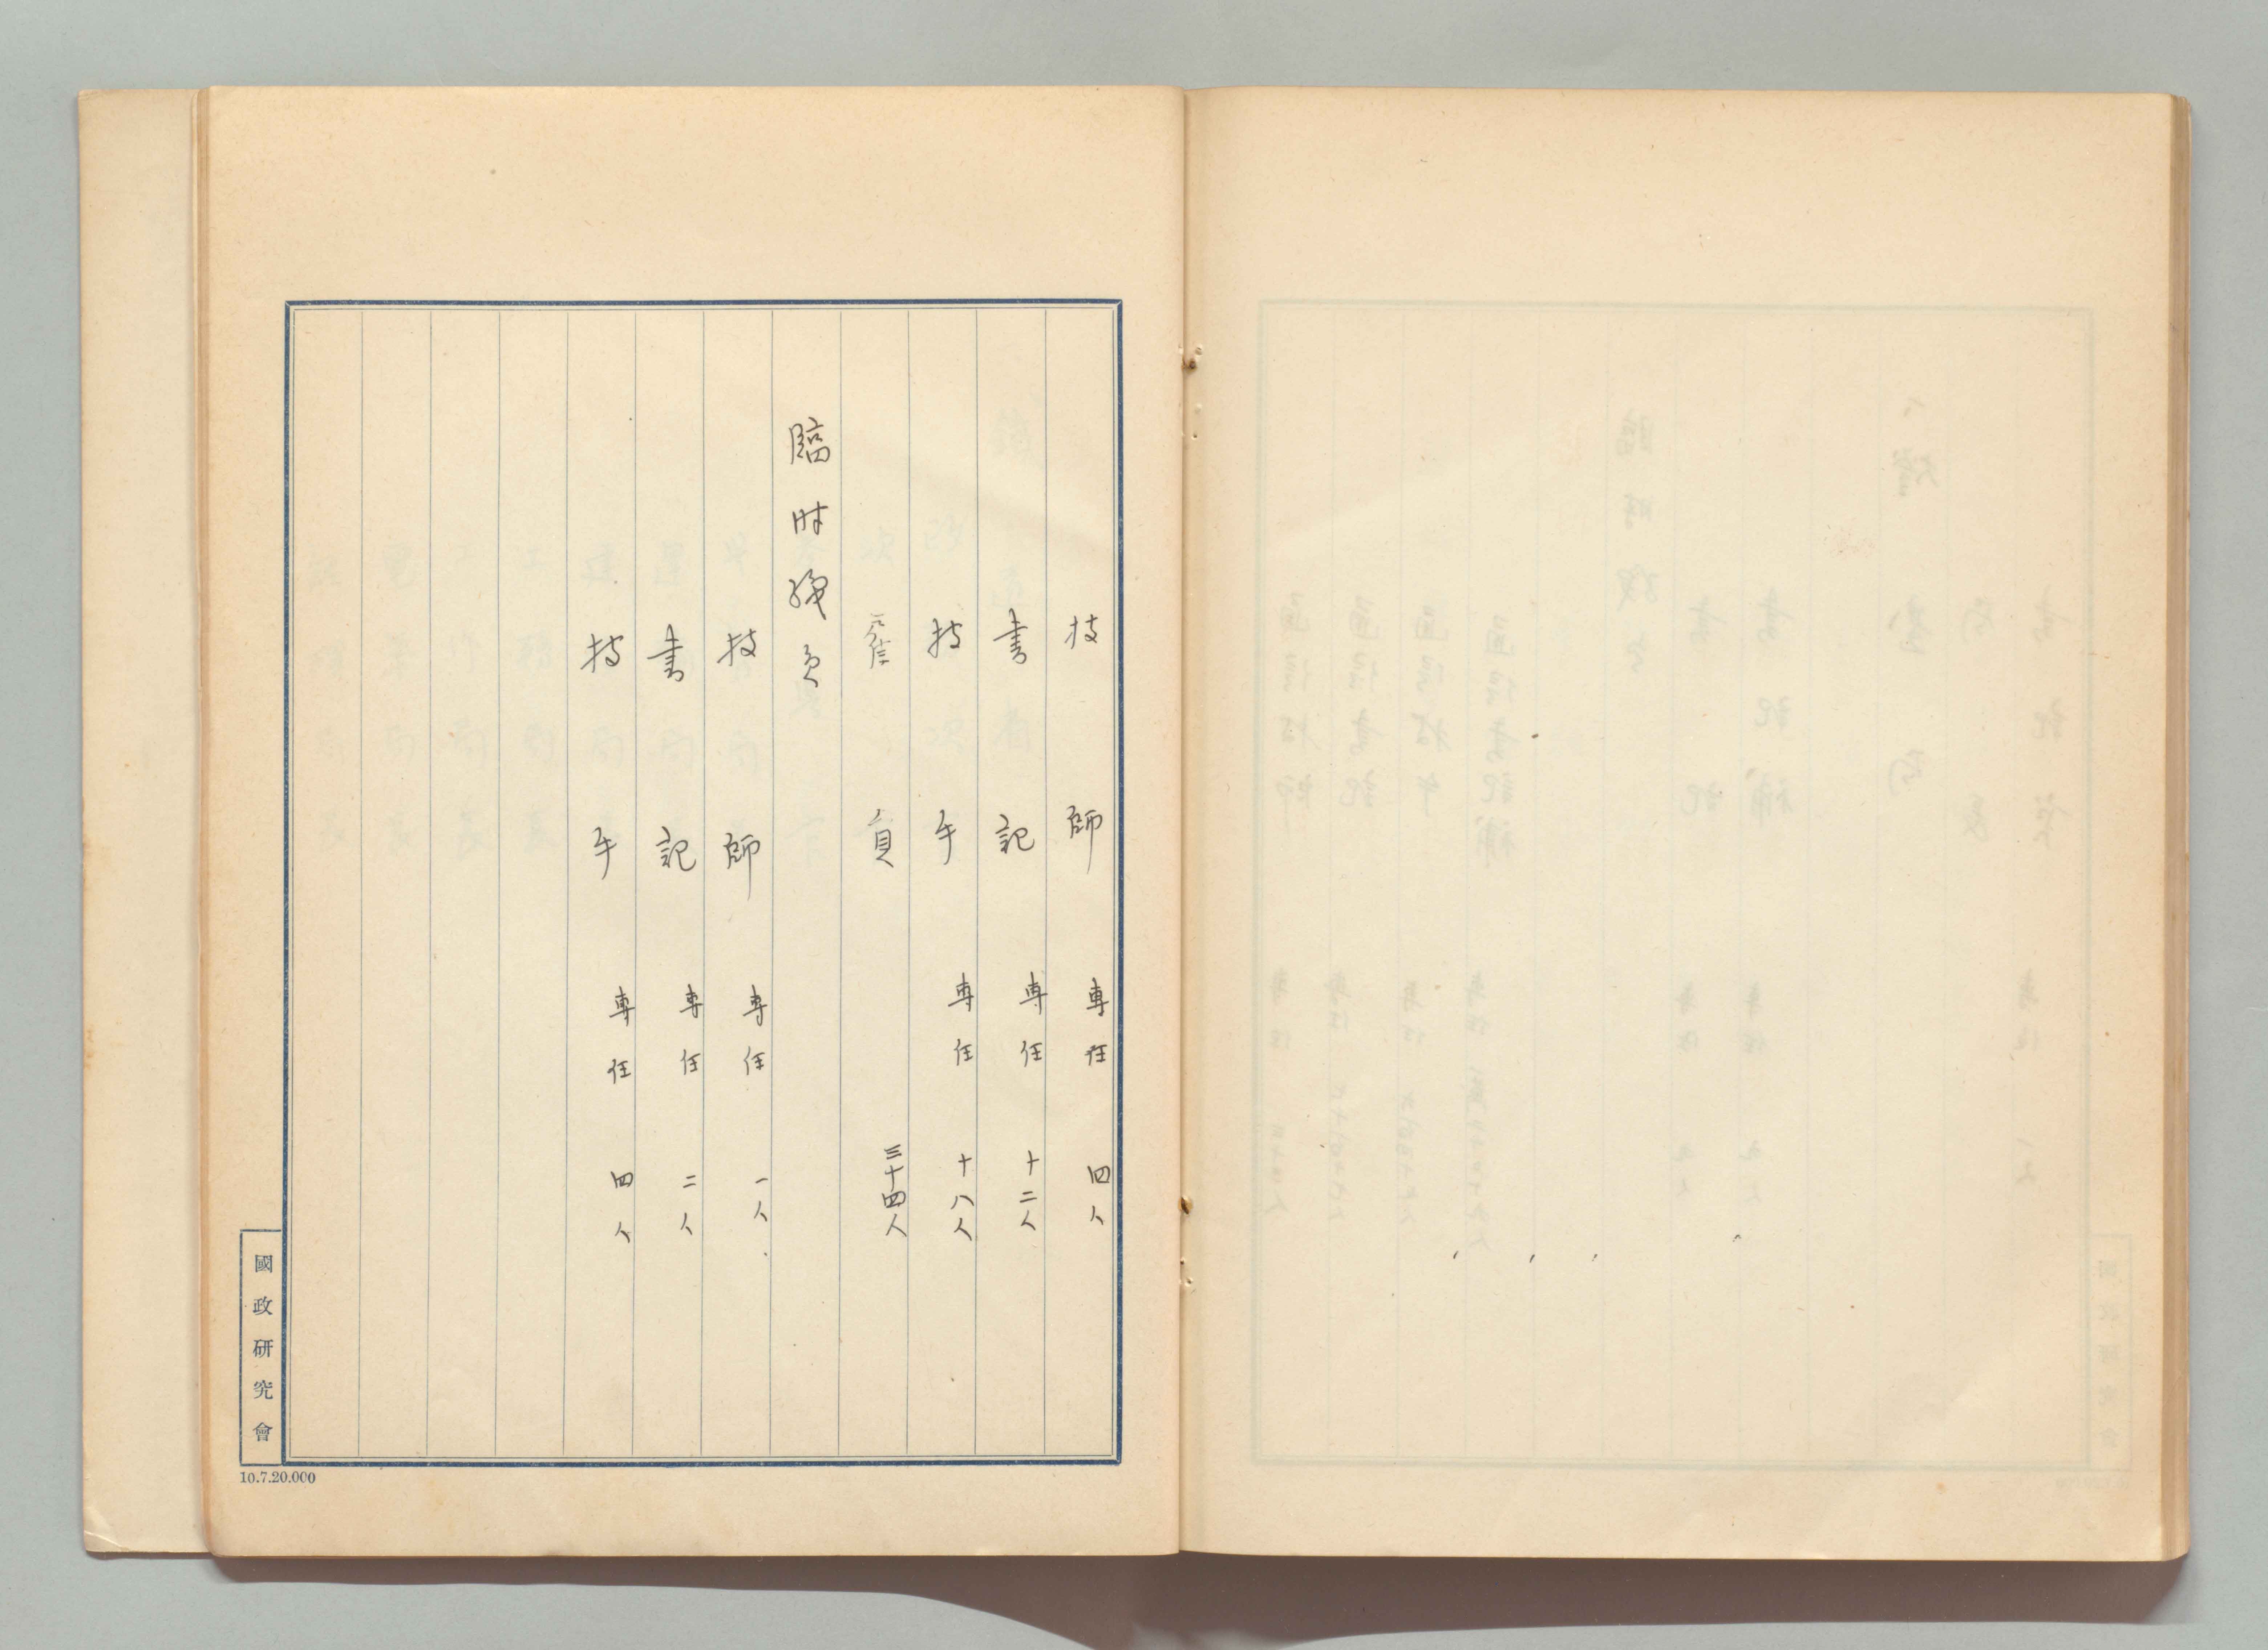 技師 専任 四人
書記 専任 十二人
技手 専任 十八人
雇員 三十四人
臨時職員
技師 専任 一人
書記 専任 二人
技手 専任 四人
國政研究會
10.7.20.000